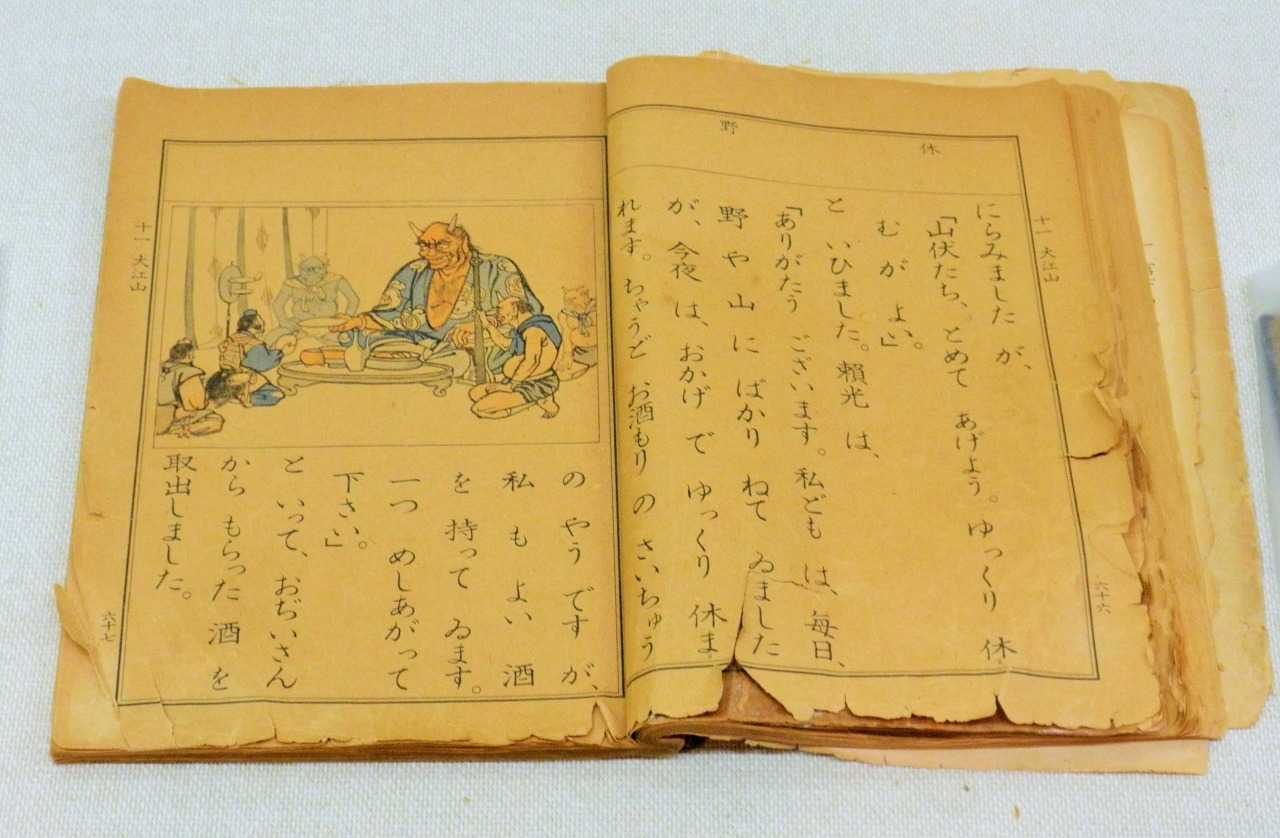 十一 大江山
六十六
休
野
にらみましたが、
「山伏たち、とめて あげよう。ゆっくり 休
むが よい。」
と いひました。賴光 は、
「ありがたう ございます。私ども は、每日、
野 や 山 に ばかり ねて ゐました
が、今夜 は、おかげ で ゆっくり 休ま
れます。ちゃうど お酒もり の さいちゅう
の やう です が、
私 も よい 酒
を 持って ゐます。
一つ めしあがって
下さい。」
と いって、おぢいさん
から もらった 酒 を
取出しました。
十一 大江山
六十七